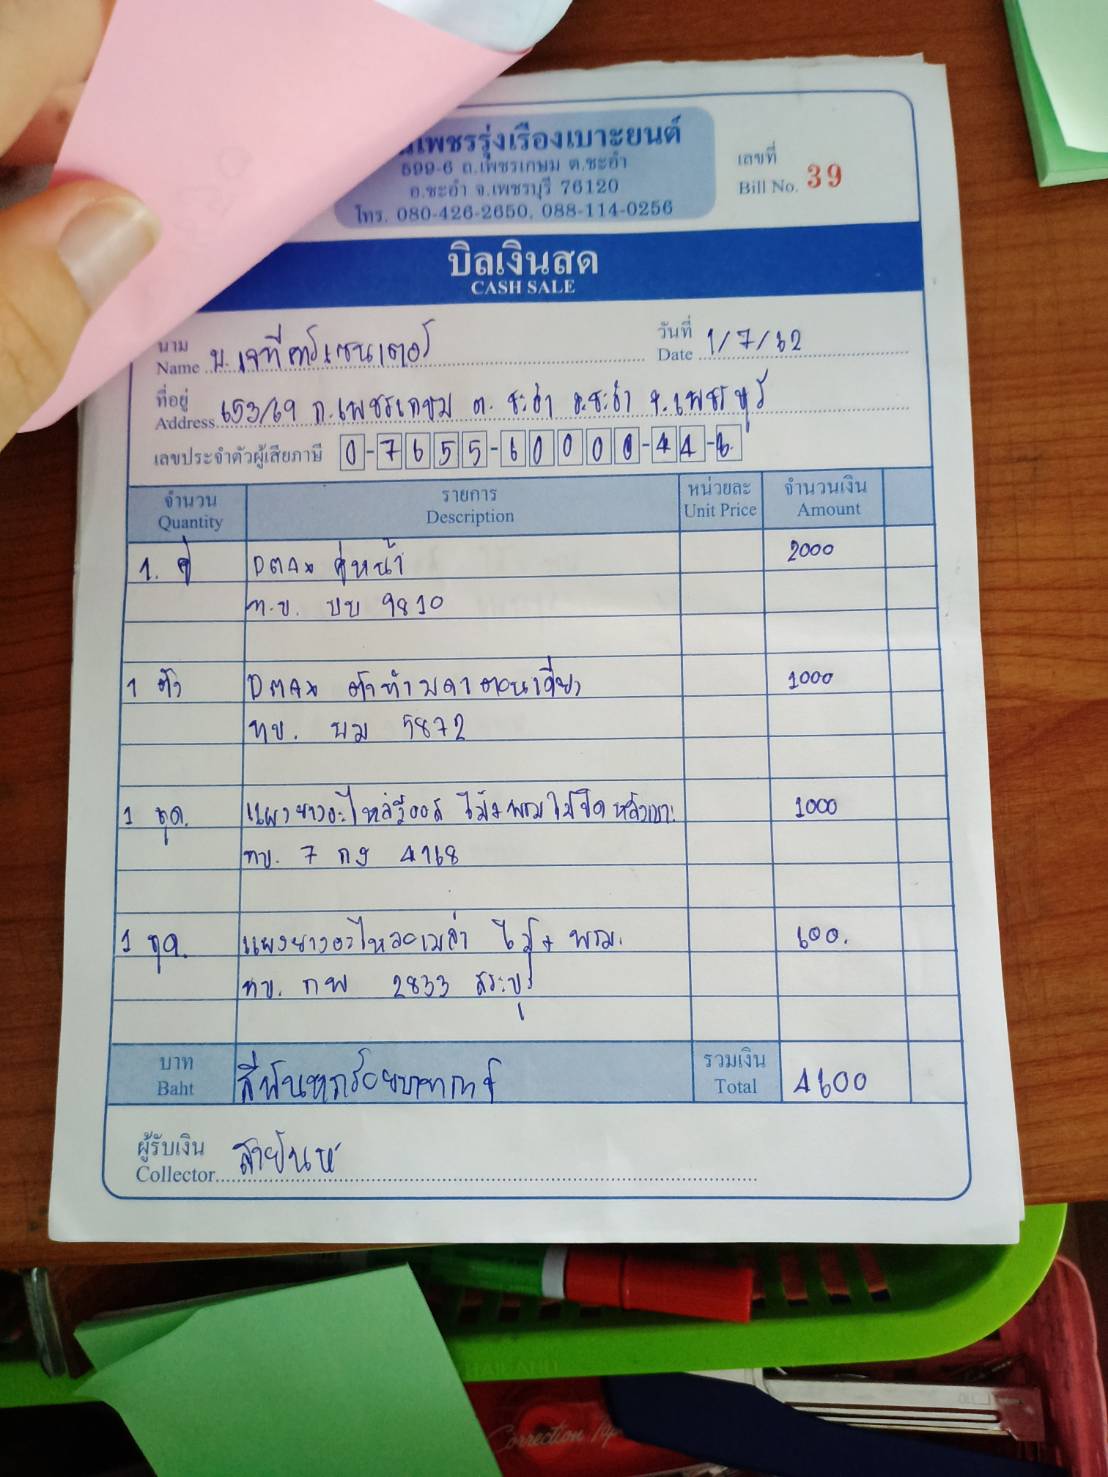 เพชรรุ่งเรืองเบาะยนต์
599-6 ถ.เพชรเกษม ต.ชะอำ
อ.ชะอำ จ.เพชรบุรี 76120
โทร. 080-426-2650, 088-114-0256
เลขที่
Bill No. 39
บิลเงินสด
CASH SALE
นาม
Name บ. เจที คาร์เซนเตอร์
วันที่
Date 1/7/62
ที่อยู่
Address 653/69 ถ.เพชรเกษม ต. ชะอำ อ.ชะอำ จ.เพชรบุรี
เลขประจำตัวผู้เสียภาษี 0-7655-60000-44-6
จำนวน รายการ หน่วยละ จำนวนเงิน
Quantity Description Unit Price Amount
1. คู่ DMAX คู่หน้า 2000
ท.บ. บบ 9810
1 ตัว DMAX 1000
ทบ. บม 5872
1 ชุด. แผงยางอะไหล่วีออส ไม้+พรม 1000
ทบ. 7 กง 4168
1 ชุด. ไม้ + พรม. 600.
ทบ. กพ 2833 สระบุรี
บาท
Baht สี่พันหกร้อยบาทถ้วน
รวมเงิน
Total 4600
ผู้รับเงิน
Collector สายันห์
Correction